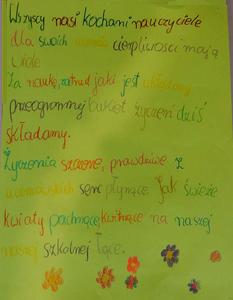 Wszyscy nasi kochani nauczyciele
dla swoich uczniów cierpliwości mają
wiele
Za naukę, za trud jaki jest składamy
przeogromny bukiet życzeń dziś
składamy.
Życzenia szczere, prawdziwe z
uczniowskich serc płynące jak świeże
kwiaty pachnące, kwitnące na naszej
naszej szkolnej łące.